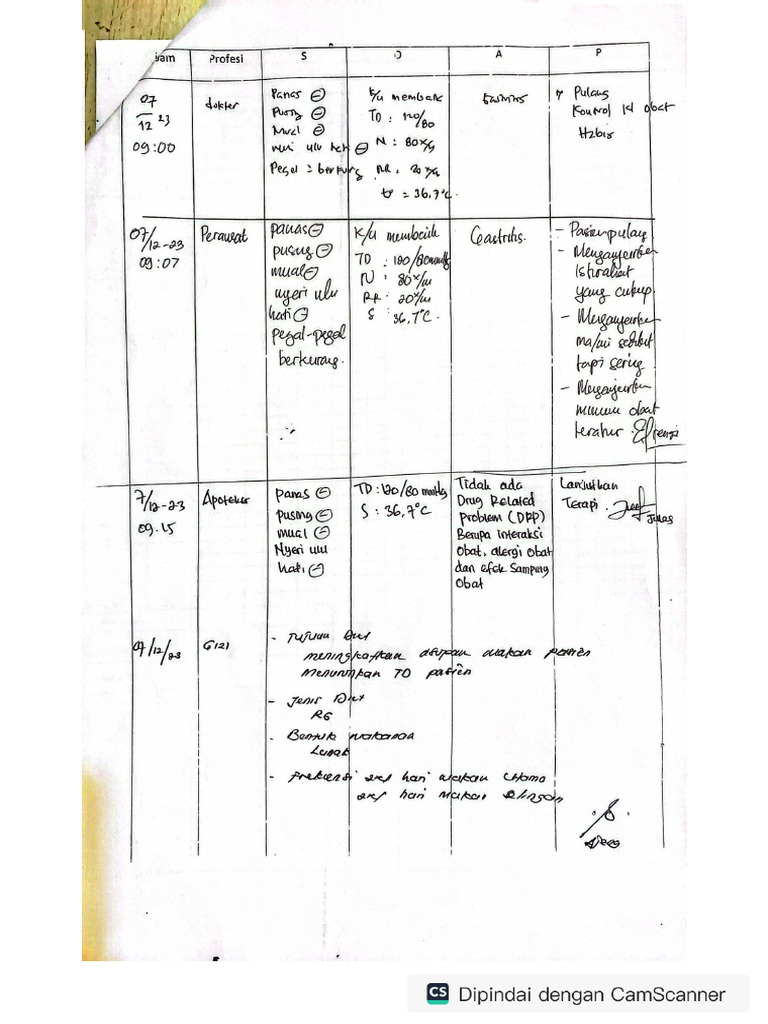 Jam Profesi S O A P
07
12 23
09:00
dokter
Panas ⊖
Pusing ⊖
Mual ⊖
nyeri ulu hati ⊖
Pegal = berkurang
K/u membaik
TD : 120/80
N : 80x/
RR : 20x/
= 36,7°C.
Pulang
Kontrol bl obat
Habis
07/12-23
09:07
Perawat
panas ⊖
pusing ⊖
mual ⊖
nyeri ulu
hati ⊖
pegal-pegal
berkurang.
K/u membaik
TD : 120/80 mmHg
N : 80x/m
RR : 20x/m
S : 36,7°C.
Gastritis.
- Pasien pulang
- Menganjurkan
istirahat
yang cukup
- Menganjurkan
makan sedikit
tapi sering
- Menganjurkan
minum obat
teratur.
7/12-23
09.15
Apoteker
panas ⊖
pusing ⊖
mual ⊖
Nyeri ulu
hati ⊖
TD : 120/80 mmHg
S : 36,7°C
Tidak ada
Drug Related
Problem (DRP)
Berupa interaksi
Obat, alergi obat
dan efek samping
Obat
Lanjutkan
Terapi.
07/12/23
Gizi
- Tujuan Diet
meningkatkan asupan makan pasien
menurunkan TD pasien
- Jenis Diet
RG
- Bentuk makanan
Lunak
- Frekuensi 3x/ hari makan utama
2x/ hari makan selingan
CS Dipindai dengan CamScanner